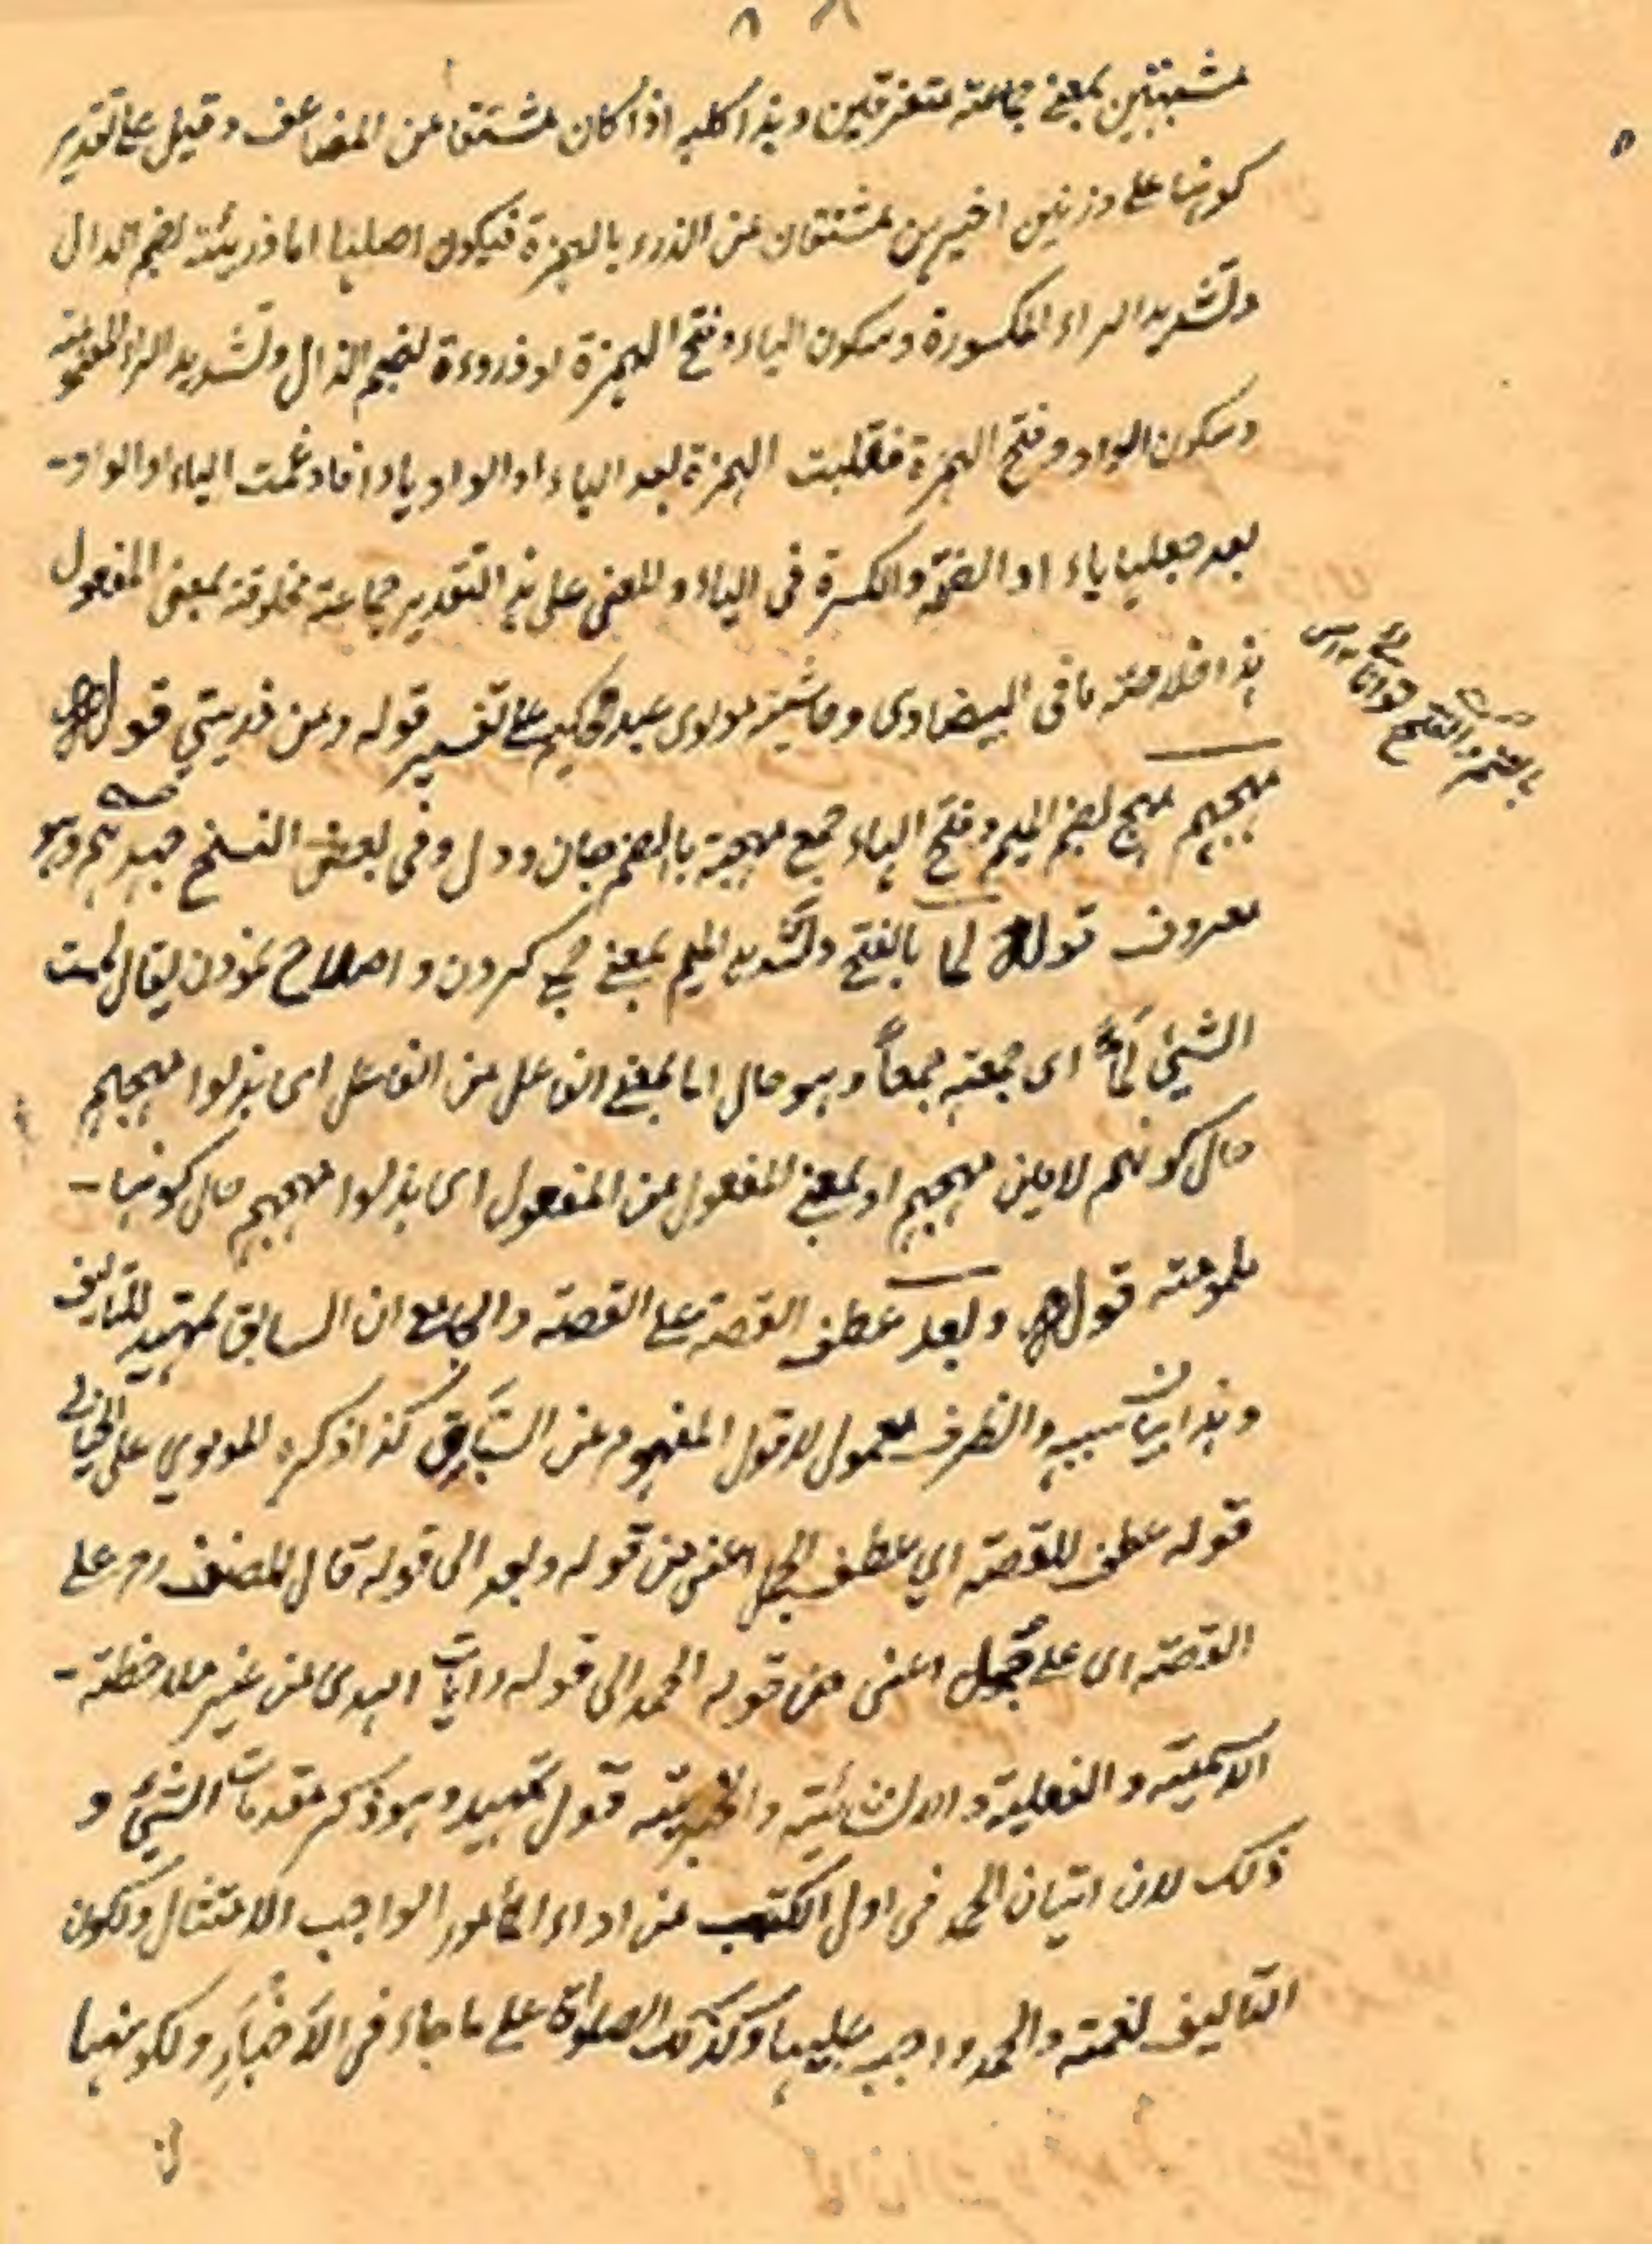 ٨ ٨
مشبتين بمعنى جماعته متفرقين وهذا كله اذا كان مشتقا من المضاعف وقيل على تقدير
كونها على وزنين اخيرين مشتقان من الذرء بالهمزة فيكون اصلها اما ذريئة بضم الذال
وتشديد الراء المكسورة وسكون الياء وفتح الهمزة او ذروءة بضم الذال وتشديد الراء المضمومة
وسكون الواو وفتح الهمزة فقلبت الهمزة بعد الياء او الواو ياء وادغمت الياء او الواو
بعد جعلها ياء او الضمة والكسرة فى الياء والمعنى على هذا التقدير جماعته مخلوقة بمعنى المفعول
هذا خلاصته ما فى البيضاوى وحاشية مولوى عبد الحكيم على تفسير قوله ومن ذريتي قوله
مهجهم مهج بضم الميم وفتح الهاء جمع مهجة بالضم جان ودل وفى بعض النسخ جهدهم وهو
معروف قوله لما بالفتح وتشديد الميم بمعنى جمع كردن و اصلاح نمودن يقال لممت
الشيئ لمًّا اى جمعته جمعاً وهو حال اما بمعنى الفاعل من الفاعل اى بذلوا مهجهم
حال كونهم لامين مهجهم او بمعنى المفعول من المفعول اى بذلوا مهجهم حال كونها
ملمومته قوله وبعد عطف القصة على القصة والجامع ان السابق تمهيد للتاليف
وهذا بيان سببه والظرف معمول لاقول المفهوم من السياق كذا ذكره المولوي على الخيالي
قوله عطف للقصة اي عطف الجمل اعنى من قوله وبعد الى قوله قال المصنف رح على
القصته اى على جمل اعنى من قوله الحمد الى قوله رايات الهدى من غير ملاحظة
الاسمية والفعلية والانشائية والخبرية قوله تمهيد وهو ذكر مقدمات الشيئ و
ذلك لان اتيان الحمد فى اول الكتب من اداء المأمور الواجب الامتثال ولكون
التاليف نعمته والحمد واجب عليها وكذلك الصلوة على ما جاء فى الاَخبَارِ ولكونها
بالضم والفتح توانائى